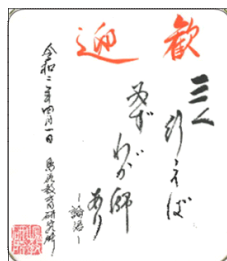 歓迎
三人行えば
必ずわが師あり
―論語―
令和二年四月一日
島根教育研究所